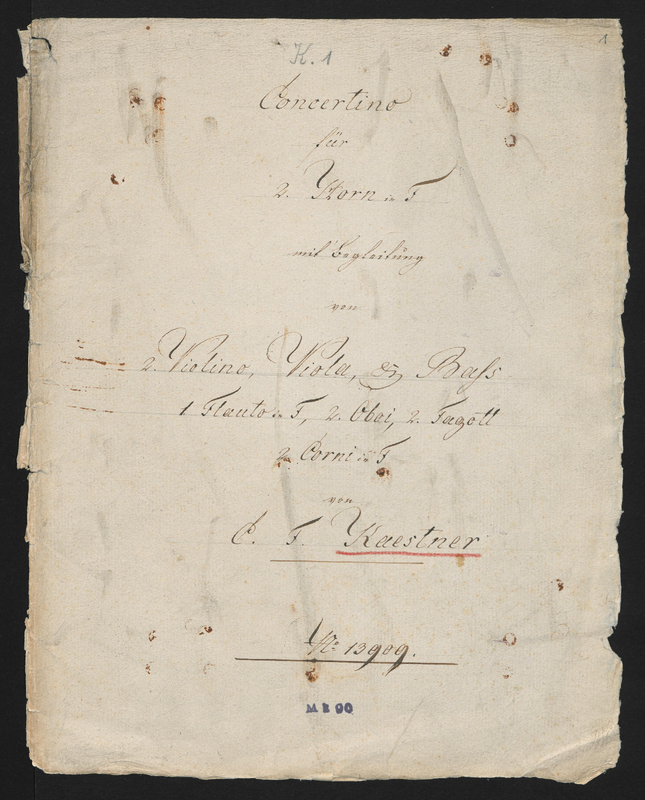 K. 1
1
Concertino
für
2. Horn in F
mit Begleitung
von
2. Violino, Viola, & Bass
1 Flauto in F, 2. Oboi, 2. Fagott
2. Corni in F
von
C. F. Kaestner
No 13909.